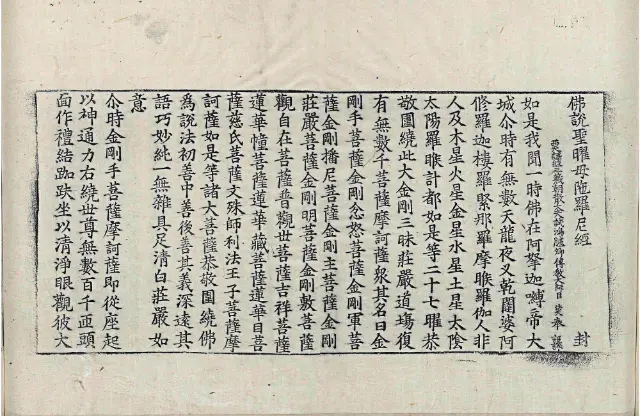 佛說聖曜母陁羅尼經 封
西天譯經三藏朝散大夫試鴻臚卿傳教大師臣法天奉 詔譯
如是我聞一時佛在阿拏迦嚩帝大
城尒時有無數天龍夜叉乾闥婆阿
修羅迦樓羅緊那羅摩睺羅伽人非
人及木星火星金星水星土星太陰
太陽羅睺計都如是等二十七曜恭
敬圍繞此大金剛三昧莊嚴道場復
有無數千菩薩摩訶薩衆其名曰金
剛手菩薩金剛忿怒菩薩金剛軍菩
薩金剛播尼菩薩金剛主菩薩金剛
莊嚴菩薩金剛明菩薩金剛敷菩薩
觀自在菩薩普觀世菩薩吉祥菩薩
蓮華幢菩薩蓮華藏菩薩蓮華目菩
薩慈氏菩薩文殊師利法王子菩薩摩
訶薩如是等諸大菩薩恭敬圍繞佛
爲說法初善中善後善其義深遠其
語巧妙純一無雜具足清白莊嚴如
意
尒時金剛手菩薩摩訶薩即從座起
以神通力右繞世尊無數百千匝頭
面作禮結跏趺坐以清淨眼觀彼大